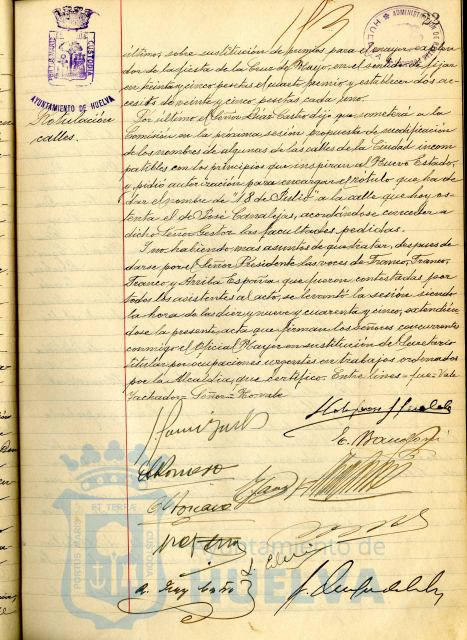 AYUNTAMIENTO DE HUELVA
Rotulación
calles.
último, sobre sustitución de premios para el mayor explen-
dor de la fiesta de la Cruz de Mayo, en el sentido de fijar
en treinta y cinco pesetas el cuarto premio, y establecer dos ac-
cesits de veinte y cinco pesetas cada uno.
Por último el Señor Díaz dijo que someterá a la
Comisión en la próxima sesión propuesta de modificación
de los nombres de algunas de las calles de la Ciudad incom-
patibles con los principios que inspiran al Nuevo Estado,
y pidió autorización para encargar el rótulo que ha de
dar el nombre de "18 de Julio" a la calle que hoy os-
tenta el de José Canalejas, acordándose conceder a
dicho Señor Gestor las facultades pedidas.
Y no habiendo mas asuntos de que tratar, despues de
darse por el Señor Presidente las voces de Franco, Franco,
Franco y Arriba España que fueron contestadas por
todos los asistentes al acto, se levantó la sesión siendo
la hora de las diez y nueve y cuarenta y cinco, extendién-
dose la presente acta que firman los Señores concurrentes
conmigo el Oficial Mayor en sustitución de Secretario
titular por ocupaciones urgentes en trabajos ordenados
por la Alcaldía, que certifico. Entre lineas = fue = Vale
Tachado = Señor = No vale
ET TERRÆ
PORTUS MARIS
CUSTODIA
Ayuntamiento de
HUELVA